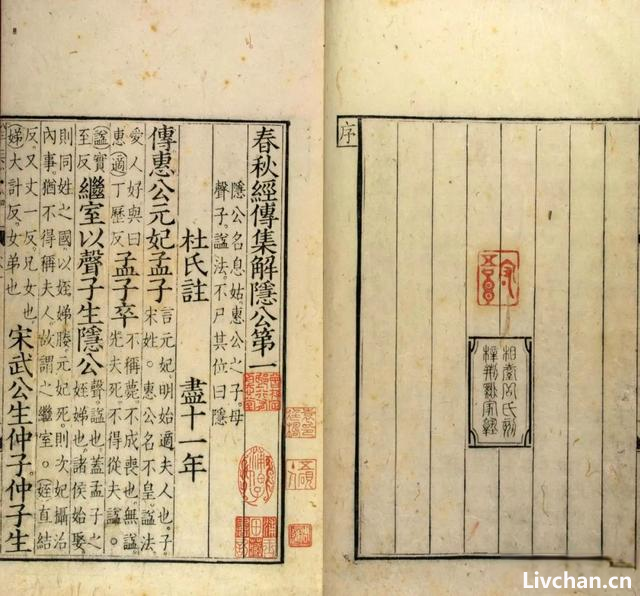 序
相臺岳氏刻
梓荆谿家塾
春秋經傳集解隱公第一
隱公名息姑。惠公之子。母
聲子。謚法。不尸其位曰隱
杜氏註 盡十一年
傳惠公元妃孟子
言元妃明始適夫人也。子
宋姓。惠公名不皇。謚法。
愛人好與曰
惠。適丁歷反
孟子卒
不稱薨。不成喪也。無謚。
先夫死。不得從夫謚。
謚實
至反
繼室以聲子生隱公
聲謚也。蓋孟子之
姪娣也。諸侯始娶
則同姓之國。以姪娣媵。元妃死。則次妃攝治
內事。猶不得稱夫人。故謂之繼室。姪直結
反。又丈一反。兄女也
娣大計反。女弟也
宋武公生仲子。仲子生
Livchan.cn